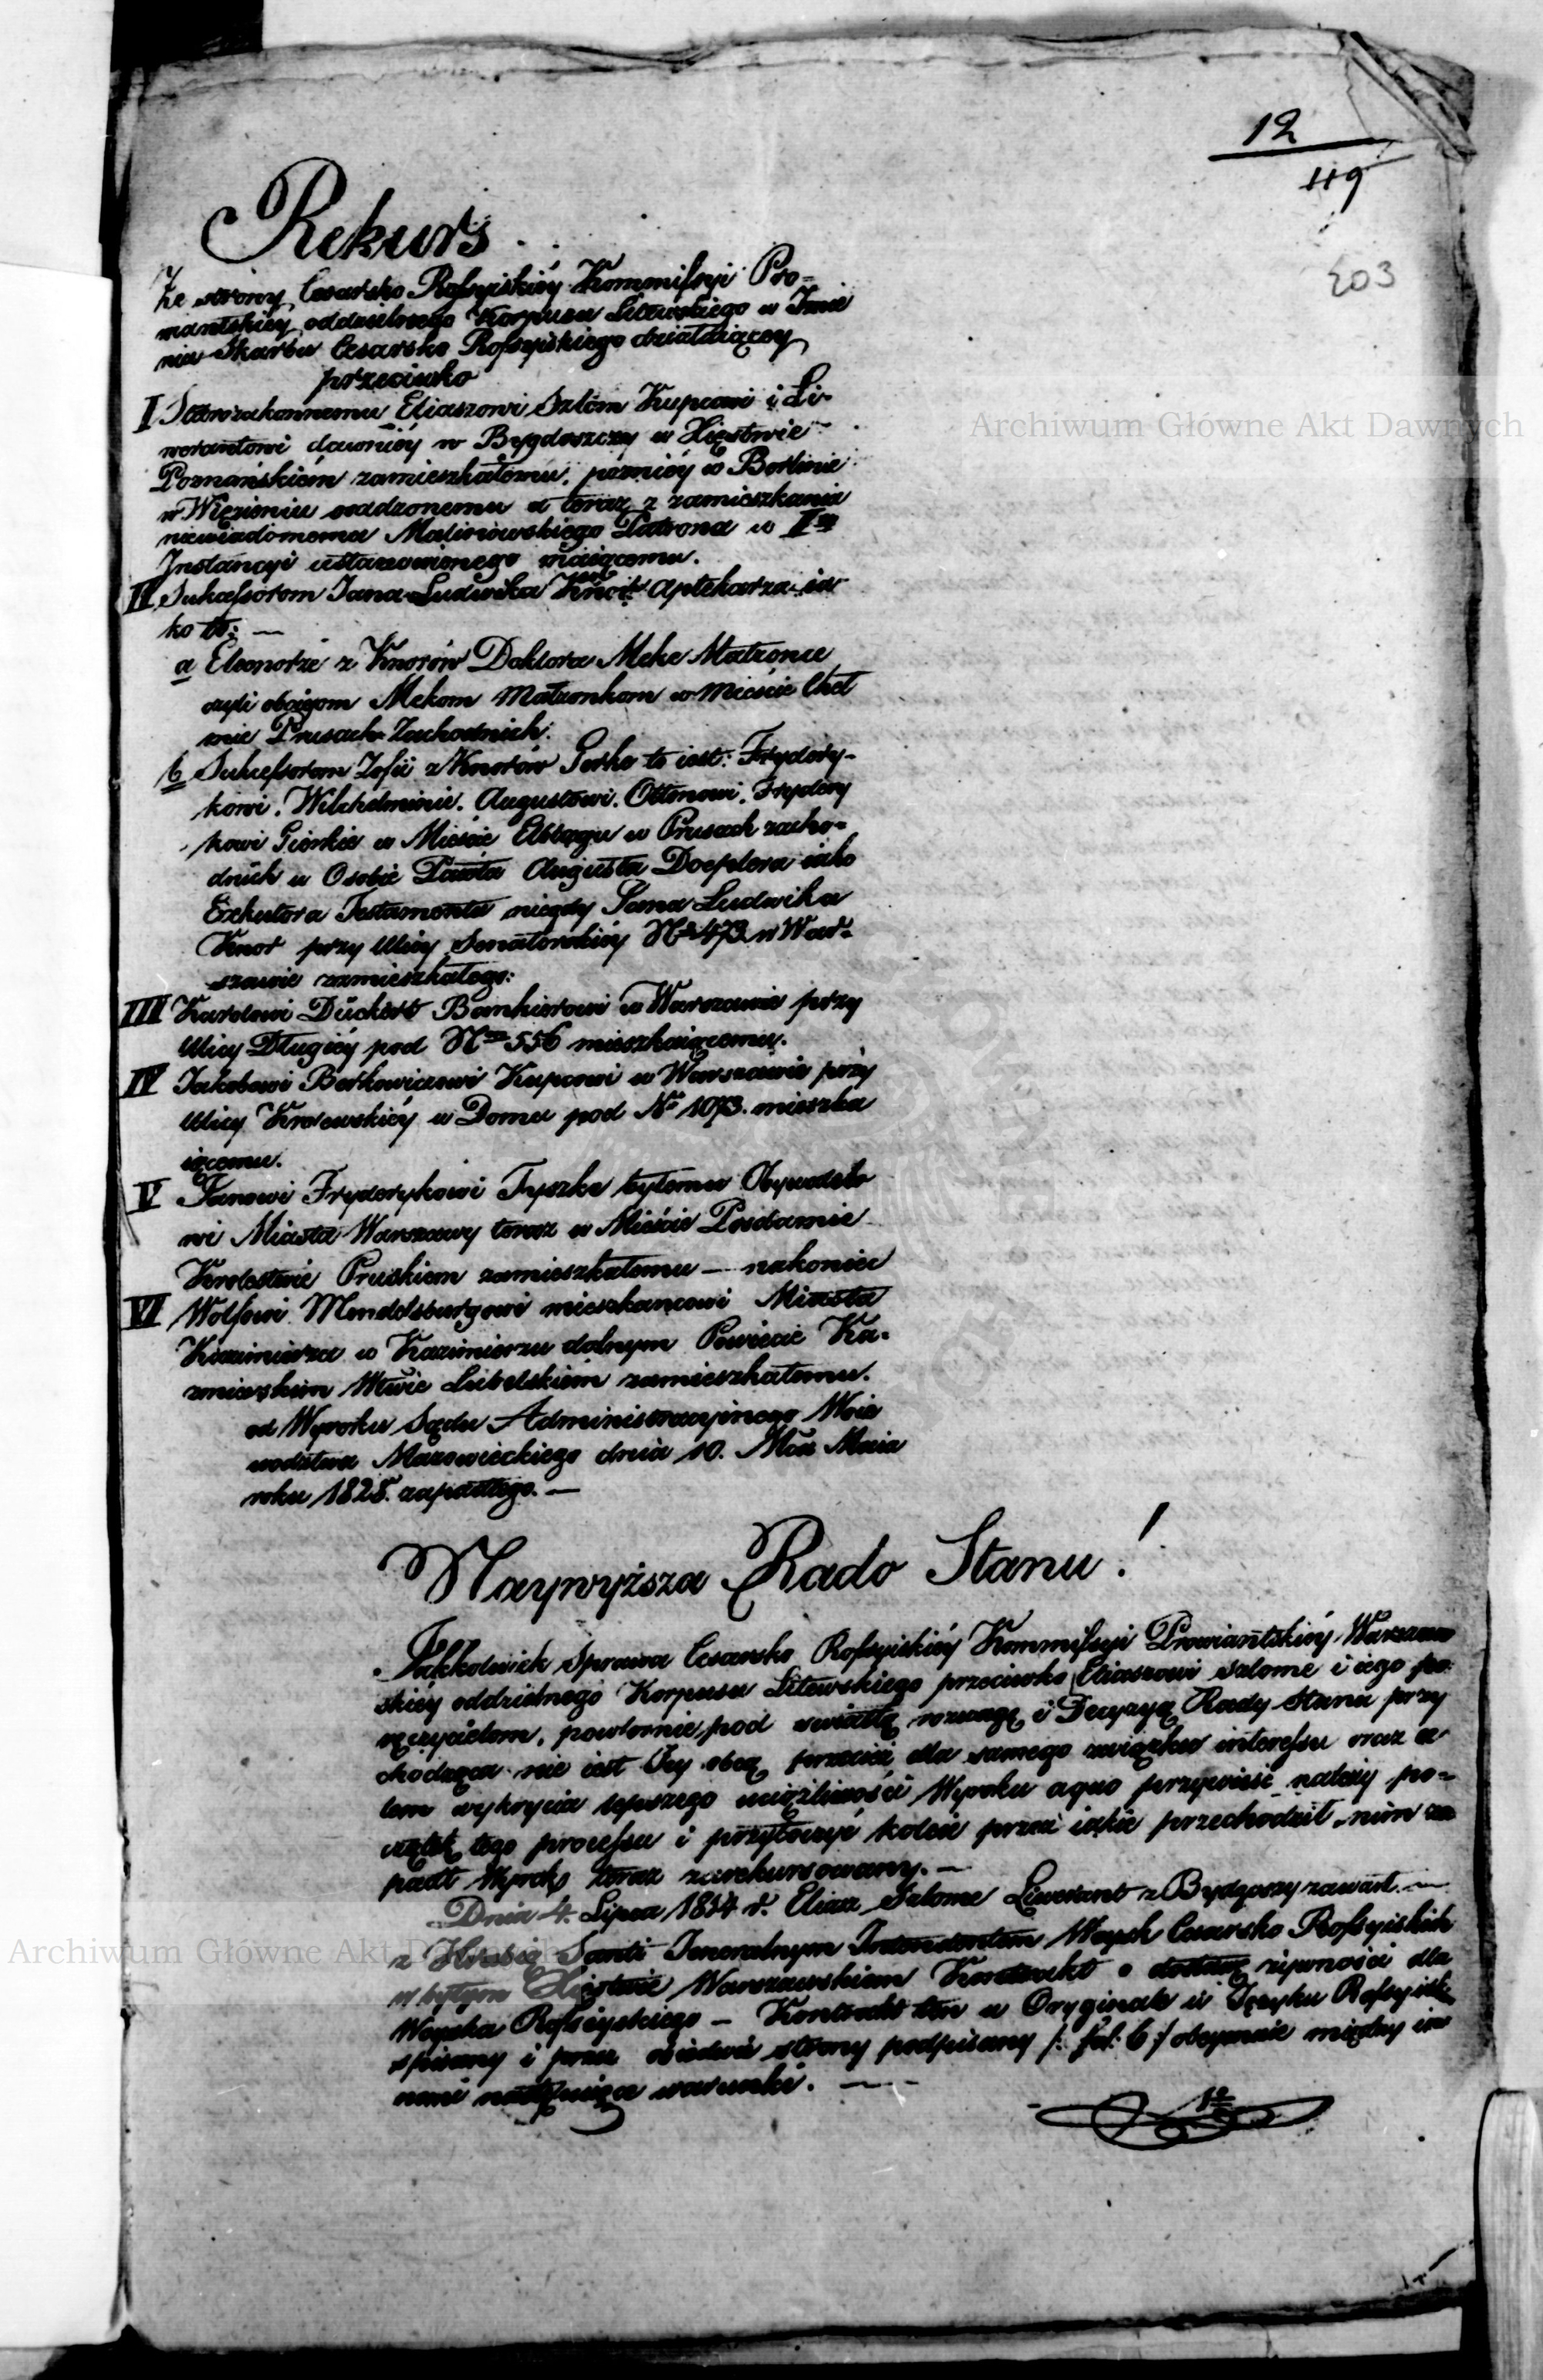 12
119
203
Rekurs
Ze strony Cesarsko Rossyiskiéy Kommissyi Pro-
wiantskiéy oddzielnego Korpusu Litewskiego w Imie
niu Skarbu Cesarsko Rossyiskiego działaiącey
przeciwko
I Starozakonnemu Eliaszowi Szlóm Kupcowi i Li-
werantowi dawniéy w Bydgoszczy w Xięstwie
Poznańskiém zamieszkałemu, pozniéy w Berlinie
w Więzieniu osadzonemu a teraz z zamieszkania
niewiadomemu Malinowskiego Patrona w I
Instancyi ustanowionego maiącemu.
II Sukcessorom Jana Ludwika Knor Aptekarza ia
ko to: —
a Eleonorze z Knorów Doktora Meke Małżonce
czyli oboygom Mekom Małżonkom w Mieście Cheł
mie Prusach Zachodnich.
b Sukcessorom Zofii z Knorów Gerke to iest: Frydery-
kowi, Wilchelminie, Augustowi, Ottonowi, Frydery
kowi Gierkie w Mieście Elblągu w Prusach zacho-
dnich w Osobie Pawła Augusta Doeplera iako
Exekutora Testamentu niegdy Jana Ludwika
Knor przy Ulicy Senatorskiéy No 473 w War-
szawie zamieszkałego:
III Karolowi Dückert Bankierowi w Warszawie przy
Ulicy Długiéy pod Nro 556 mieszkaiącemu.
IV Jakobowi Berkowiczowi Kupcowi w Warszawie przy
Ulicy Krolewskiéy w Domu pod No 1073. mieszka
iącemu.
V Janowi Fryderykowi Tyszke byłemu Obywatelo
wi Miasta Warszawy teraz w Mieście Posdamie
Krolestwie Pruskiem zamieszkałemu — nakoniec
VI Wolfowi Mendelsburgowi mieszkancowi Miasta
Kazimierza w Kazimierzu dolnym Powiecie Ka-
zmierskim Wtwie Lubelskiém zamieszkałemu.
od Wyroku Sądu Administracyinego Woie
wodztwa Mazowieckiego dnia 10. Mca Maia
roku 1828. zapadłego. —
Naywyższa Rado Stanu!
Jakkolwiek Sprawa Cesarsko Rossyiskiéy Kommissyi Prowiantskiéy Warszaw
skiéy oddzielnego Korpusu Litewskiego przeciwko Eliaszowi Salome i iego po
ręczycielom, powtornie pod swiatłą rozwagę i Decyzyą Rady Stanu przy
chodząca nie iest Jey obcą przecież dla samego związku interessu oraz ce
lem wykrycia lepszego uciążliwości Wyroku a quo przywieść należy po-
czątek tego processu i przytoczyć koleie przez iakie przechodził nim za
padł Wyrok teraz zarekursowany. —
Dnia 4. Lipca 1814 r. Eliasz Salome Liwerant z Bydgoszczy zawarł —
z Hrabią Santi Jeneralnym Intendentem Woysk Cesarsko Rossyiskich
w byłym Xięstwie Warszawskiem Kontrakt o dostawę żywności dla
Woyska Rossyiskiego — Kontrakt ten w Oryginale w Języku Rossyisk.
spisany i przez obiedwie strony podpisany /: fol: 6 :/ obeymuie między in
nemi następuiące warunki. —
1o